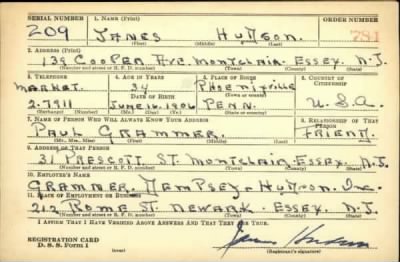 SERIAL NUMBER 1. NAME (Print) ORDER NUMBER
209 JAMES HUTSON 781
(First) (Middle) (Last)
2. ADDRESS (Print)
139 COOPER AVE. MONTCLAIR ESSEX N.J.
(Number and street or R. F. D. number) (Town) (County) (State)
3. TELEPHONE 4. AGE IN YEARS 5. PLACE OF BIRTH 6. COUNTRY OF CITIZENSHIP
MARKET 34 PHOENIXVILLE
DATE OF BIRTH (Town or county)
2-7911 JUNE 16, 1906 PENN. U.S.A.
(Exchange) (Number) (Mo.) (Day) (Yr.) (State or country)
7. NAME OF PERSON WHO WILL ALWAYS KNOW YOUR ADDRESS 8. RELATIONSHIP OF THAT PERSON
PAUL GRAMMER FRIEND
(Mr., Mrs., Miss) (First) (Middle) (Last)
9. ADDRESS OF THAT PERSON
31 PRESCOTT ST. MONTCLAIR-ESSEX, N.J.
(Number and street or R. F. D. number) (Town) (County) (State)
10. EMPLOYER'S NAME
GRAMMER, DEMPSEY + HUTSON, INC.
11. PLACE OF EMPLOYMENT OR BUSINESS
212 ROME ST. NEWARK ESSEX N.J.
(Number and street or R. F. D. number) (Town) (County) (State)
I AFFIRM THAT I HAVE VERIFIED ABOVE ANSWERS AND THAT THEY ARE TRUE.
REGISTRATION CARD
D. S. S. Form 1 (over) James Hutson
(Registrant's signature)